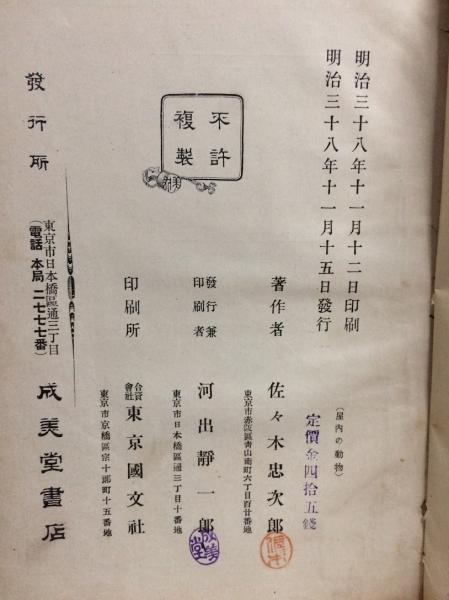 明治三十八年十一月十二日印刷
明治三十八年十一月十五日發行
(屋内の動物)
定價金四拾五錢
不許
複製
著作者
佐々木忠次郎
東京市赤阪區青山南町六丁目百廿番地
發行兼
印刷者
河出靜一郎
東京市日本橋區通三丁目十番地
成美堂
印刷所
合資
會社
東京國文社
東京市京橋區宗十郎町十五番地
發行所
東京市日本橋區通三丁目
(電話 本局 二七七七番)
成美堂書店